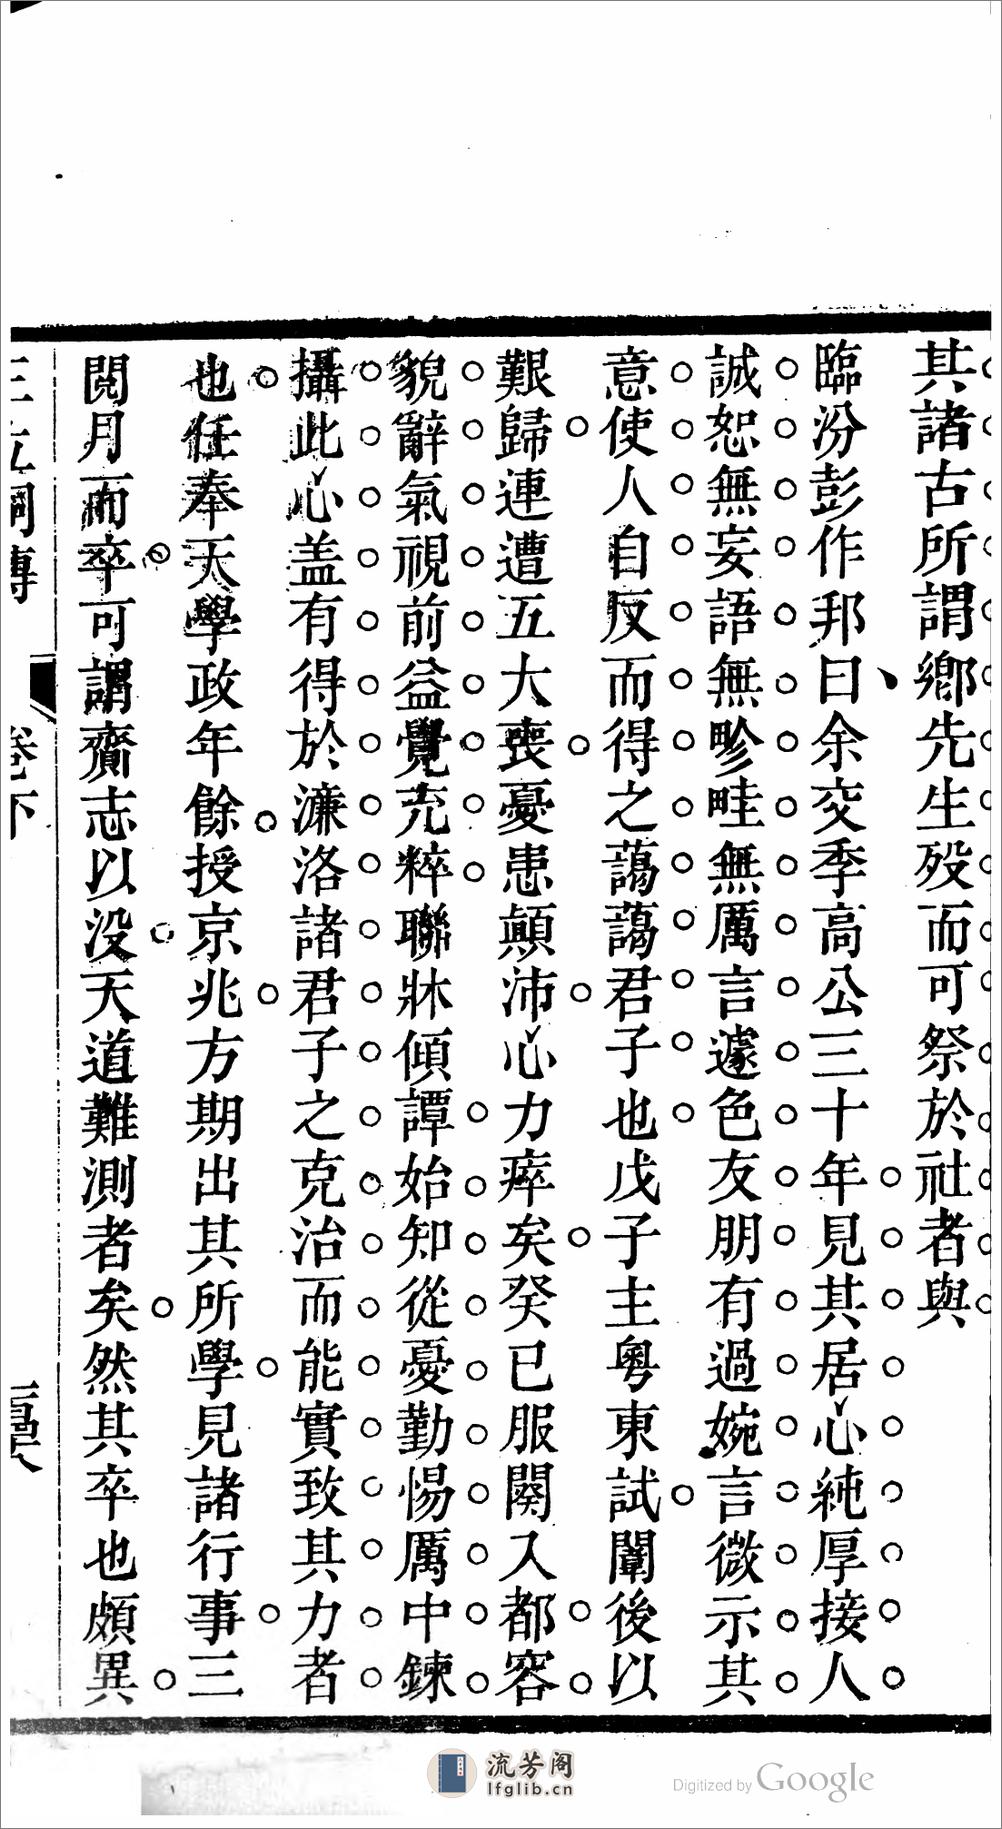 其諸古所謂鄉先生歿而可祭於社者與
臨汾彭作邦曰余交季高公三十年見其居心純厚接人
誠恕無妄語無畛畦無厲言遽色友朋有過婉言微示其
意使人自反而得之藹藹君子也戊子主粵東試闈後以
艱歸連遭五大喪憂患顛沛心力瘁矣癸巳服闋入都容
貌辭氣視前益覺充粹聯牀傾譚始知從憂勤惕厲中鍊
攝此心盖有得於濂洛諸君子之克治而能實致其力者
也任奉天學政年餘授京兆方期出其所學見諸行事三
閱月而卒可謂齎志以没天道難測者矣然其卒也頗異
三立祠傳 卷下
流芳阁
lfglib.cn
Digitized by Google